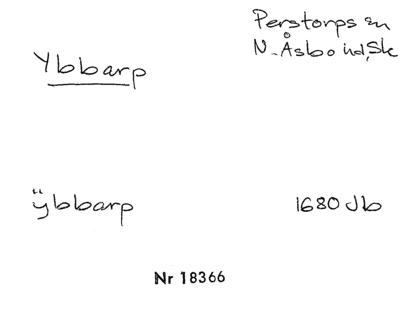 Perstorps sn
Ybbarp
N. Åsbo hd, Sk
ÿbbarp
1680 Jb
Nr 18366